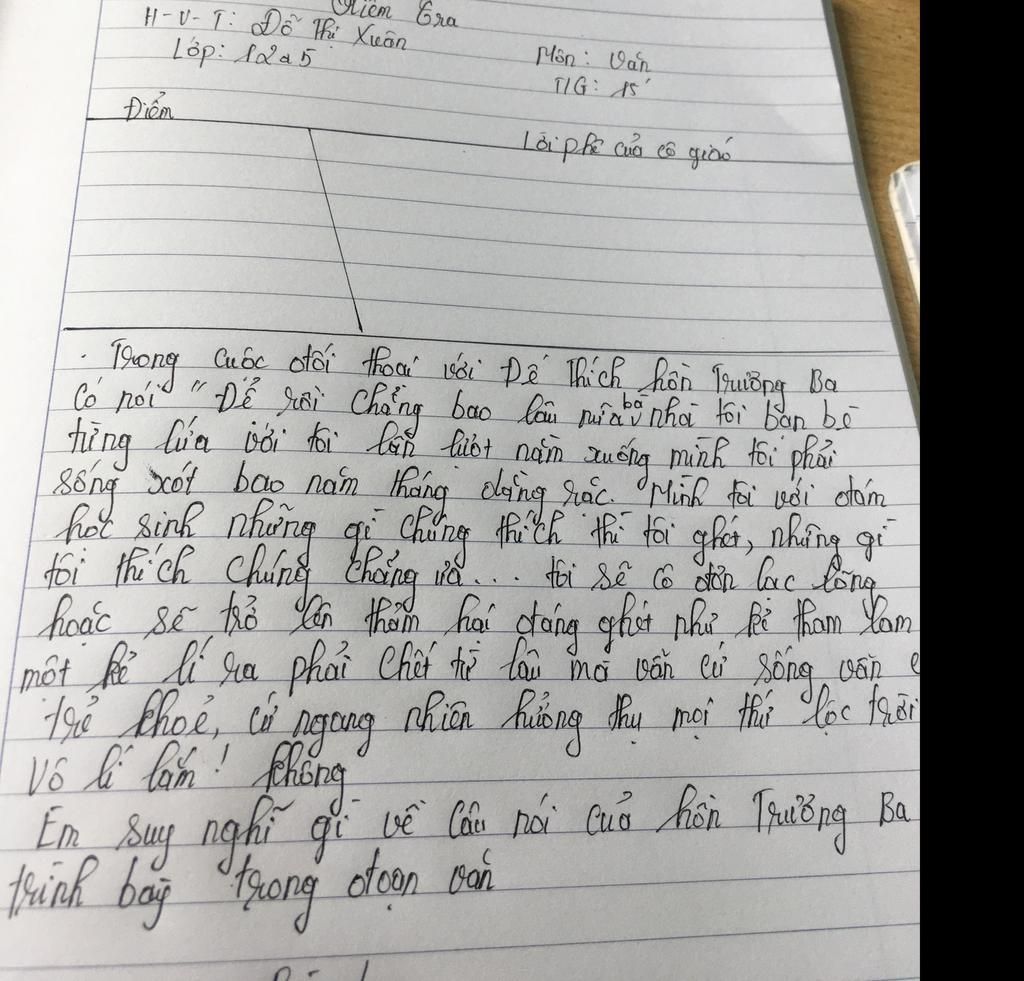 Kiểm Tra
H-V-T: Đỗ Thị Xuân
Lớp: 12a5
Môn: Văn
T/G: 15'
Điểm
Lời phê của cô giáo
. Trong cuộc đối thoại với Đế Thích hồn Trương Ba
Có nói " Để rồi chẳng bao lâu nữa bà nhà tôi bạn bè
từng lứa với tôi lần lượt nằm xuống mình tôi phải
sống xót bao năm tháng dằng rặc. Mình tôi với đám
học sinh những gì chúng thích thì tôi ghét, những gì
tôi thích chúng chẳng ưa... tôi sẽ cô đơn lạc lõng
hoặc sẽ trở lên thảm hại đáng ghét như kẻ tham lam
một kẻ lí ra phải chết từ lâu mà vẫn cứ sống vẫn
trẻ khoẻ, cứ ngang nhiên hưởng thụ mọi thứ lộc trời
Vô lí lắm! không
Em suy nghĩ gì về câu nói của hồn Trương Ba
trình bày trong đoạn văn